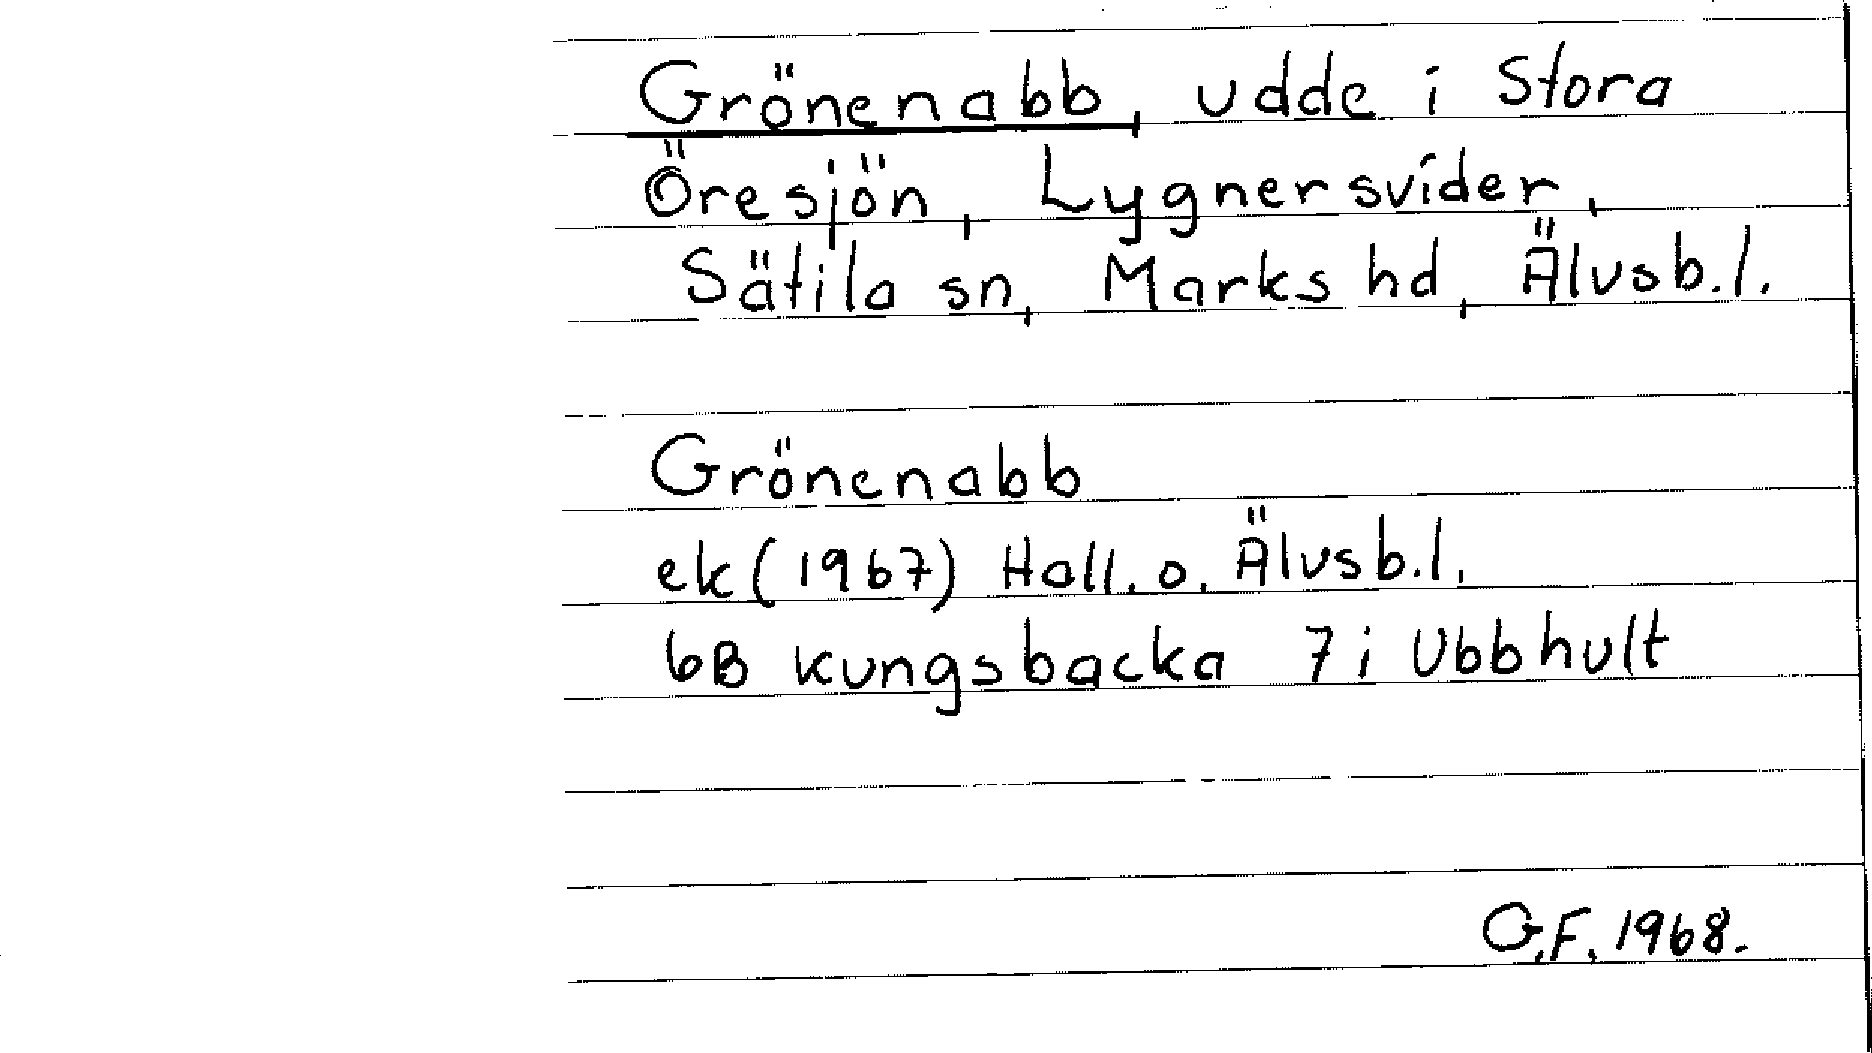 Grönenabb, udde i Stora
Öresjön, Lygnersvider,
Sätila sn, Marks hd, Älvsb.l.
Grönenabb
ek (1967) Hall. o. Älvsb.l.
6B Kungsbacka 7i Ubbhult
G.F. 1968.